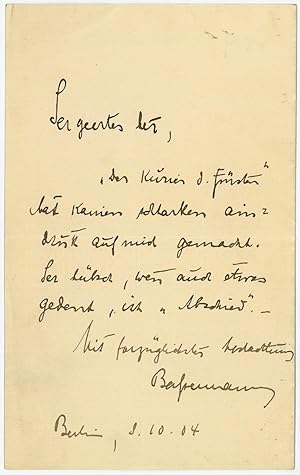 Ser geertes Her,
"Der Kurier d. Fürsten"
hat keinen starken ein=
druk auf mich gemacht.
Ser hübsch, wen auch etwas
gedent, ist "Abschied". —
Mit forzüglichster hochachtung
Bassermann
Berlin, 8.10.04